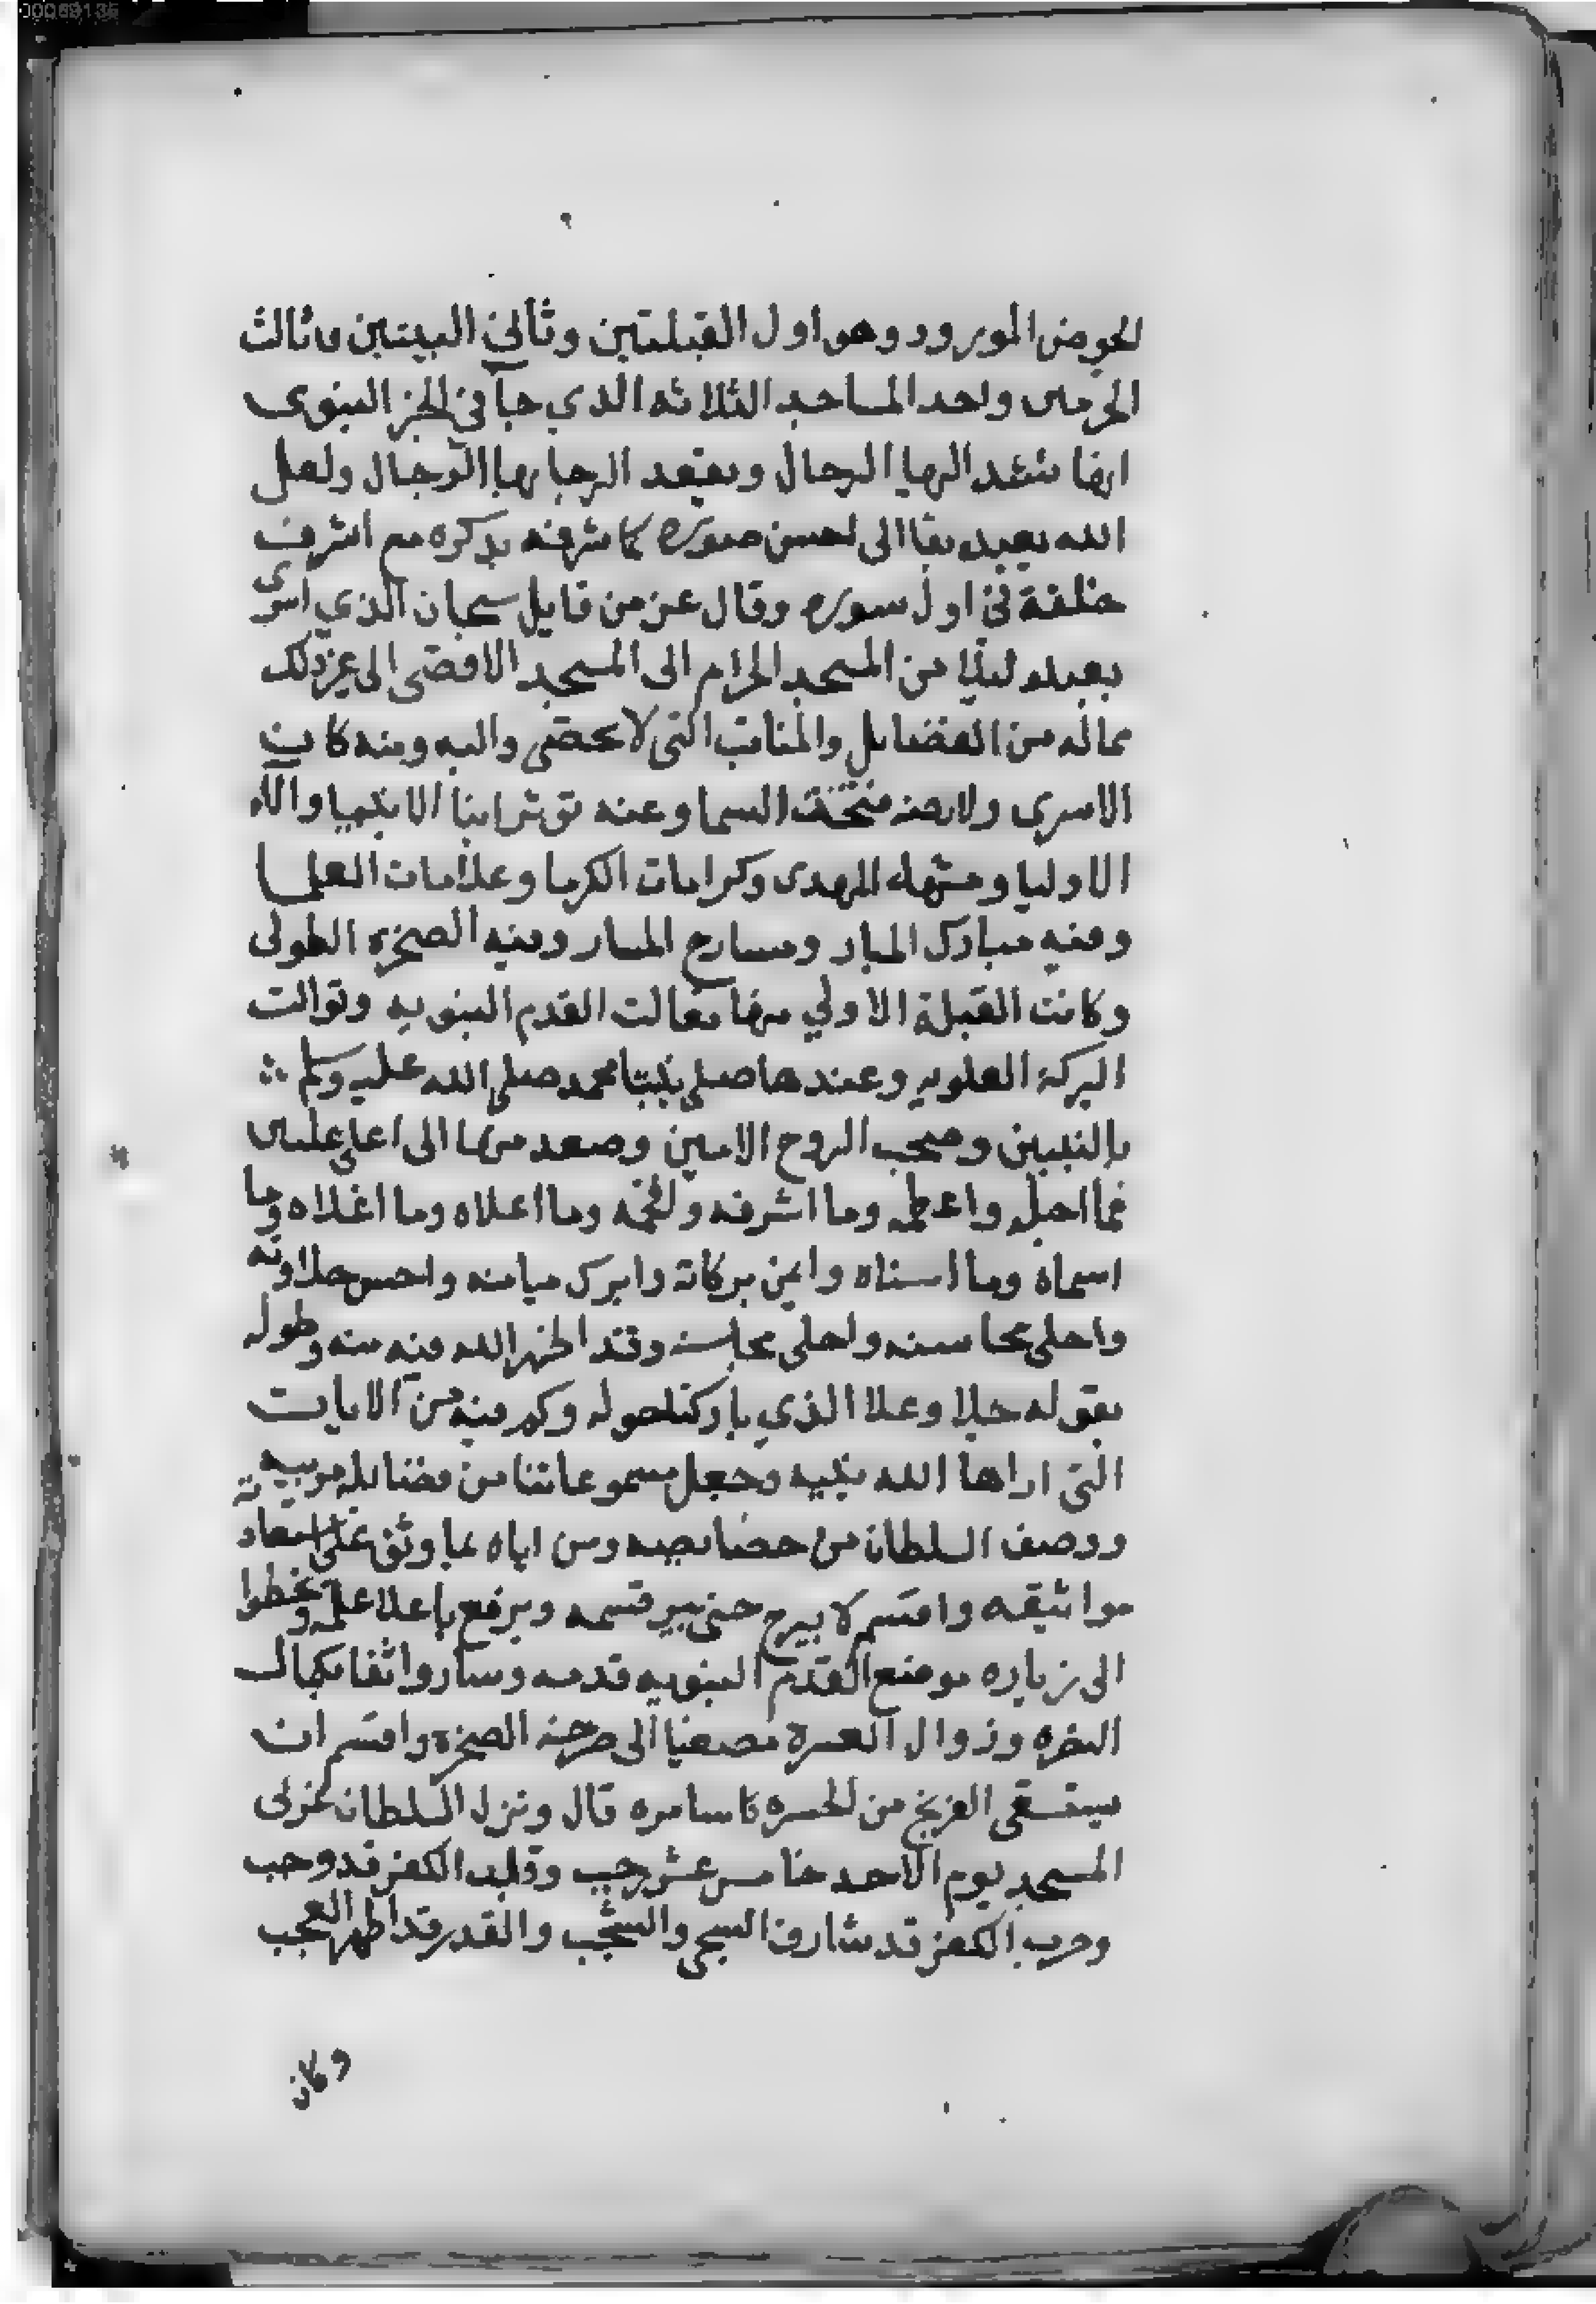 00069135
الحوض المورود وهو اول القبلتين وثاني البيتين وثالث
الحرمين واحد المساجد الثلاثه الذي جآ في الخبر النبوى
انها تشد اليها الرحال ويعقد الرجا بها الرجال ولعل
الله يعيده بنا الى احسن صوره كما شرفه بذكره مع اشرف
خلقة في اول سوره وقال عز من قايل سبحان الذي اسرى
بعبده ليلا من المسجد الحرام الى المسجد الاقصى الى غير ذلك
مماله من الفضايل والمناقب التى لا تحصى واليه ومنه كان
الاسرى ولارضه فتحت السما وعنه توثر انبا الانبيا والآ
الاوليا ومشهد المهدى وكرامات الكرما وعلامات العلما
وفيه مبارك المبار ومسارح المسار وفيه الصخره الطولى
وكانت القبلة الاولي منها تعالت القدم النبويه وتوالت
البركة العلويه وعندها صلى نبينا محمد صلى الله عليه وسلم
بالنبيين وصحب الروح الامين وصعد منها الى اعلى عليين
فما اجله واعظمه وما اشرفه وافخمه وما اعلاه وما اغلاه وما
اسماه وما اسناه وايمن بركاته وابرك ميامنه واحسن حلاوته
واحلى محاسنه واحلى مجالسه وقد اظهر الله فيه منه وطوله
بقوله جلا وعلا الذي باركنا حوله وكم فيه من الايات
التى اراها الله نبيه وجعل مسموعاتنا من فضايله مرييه
ووصف السلطان من خصايصه ومن اياه بما وثق على استعاد ته
مواثيقه واقسم لا يبرح حتى يبر قسمه ويرفع باعلاه علمه وتخطوا
الى زياره موضع القدم النبويه قدمه وسار واثقا بكمال
النصره وزوال العسره مصغيا الى صرخة الصخرة واقسم ان
يستسقى الفرنج من الحسره كاسا مره قال ونزل السلطان غربى
المسجد يوم الاحد خامس عشر رجب وقلب الكفر قد وجب
وحرب الكفر قد شارف الشجى والشجب والقدر قد اظهر العجب
وكان